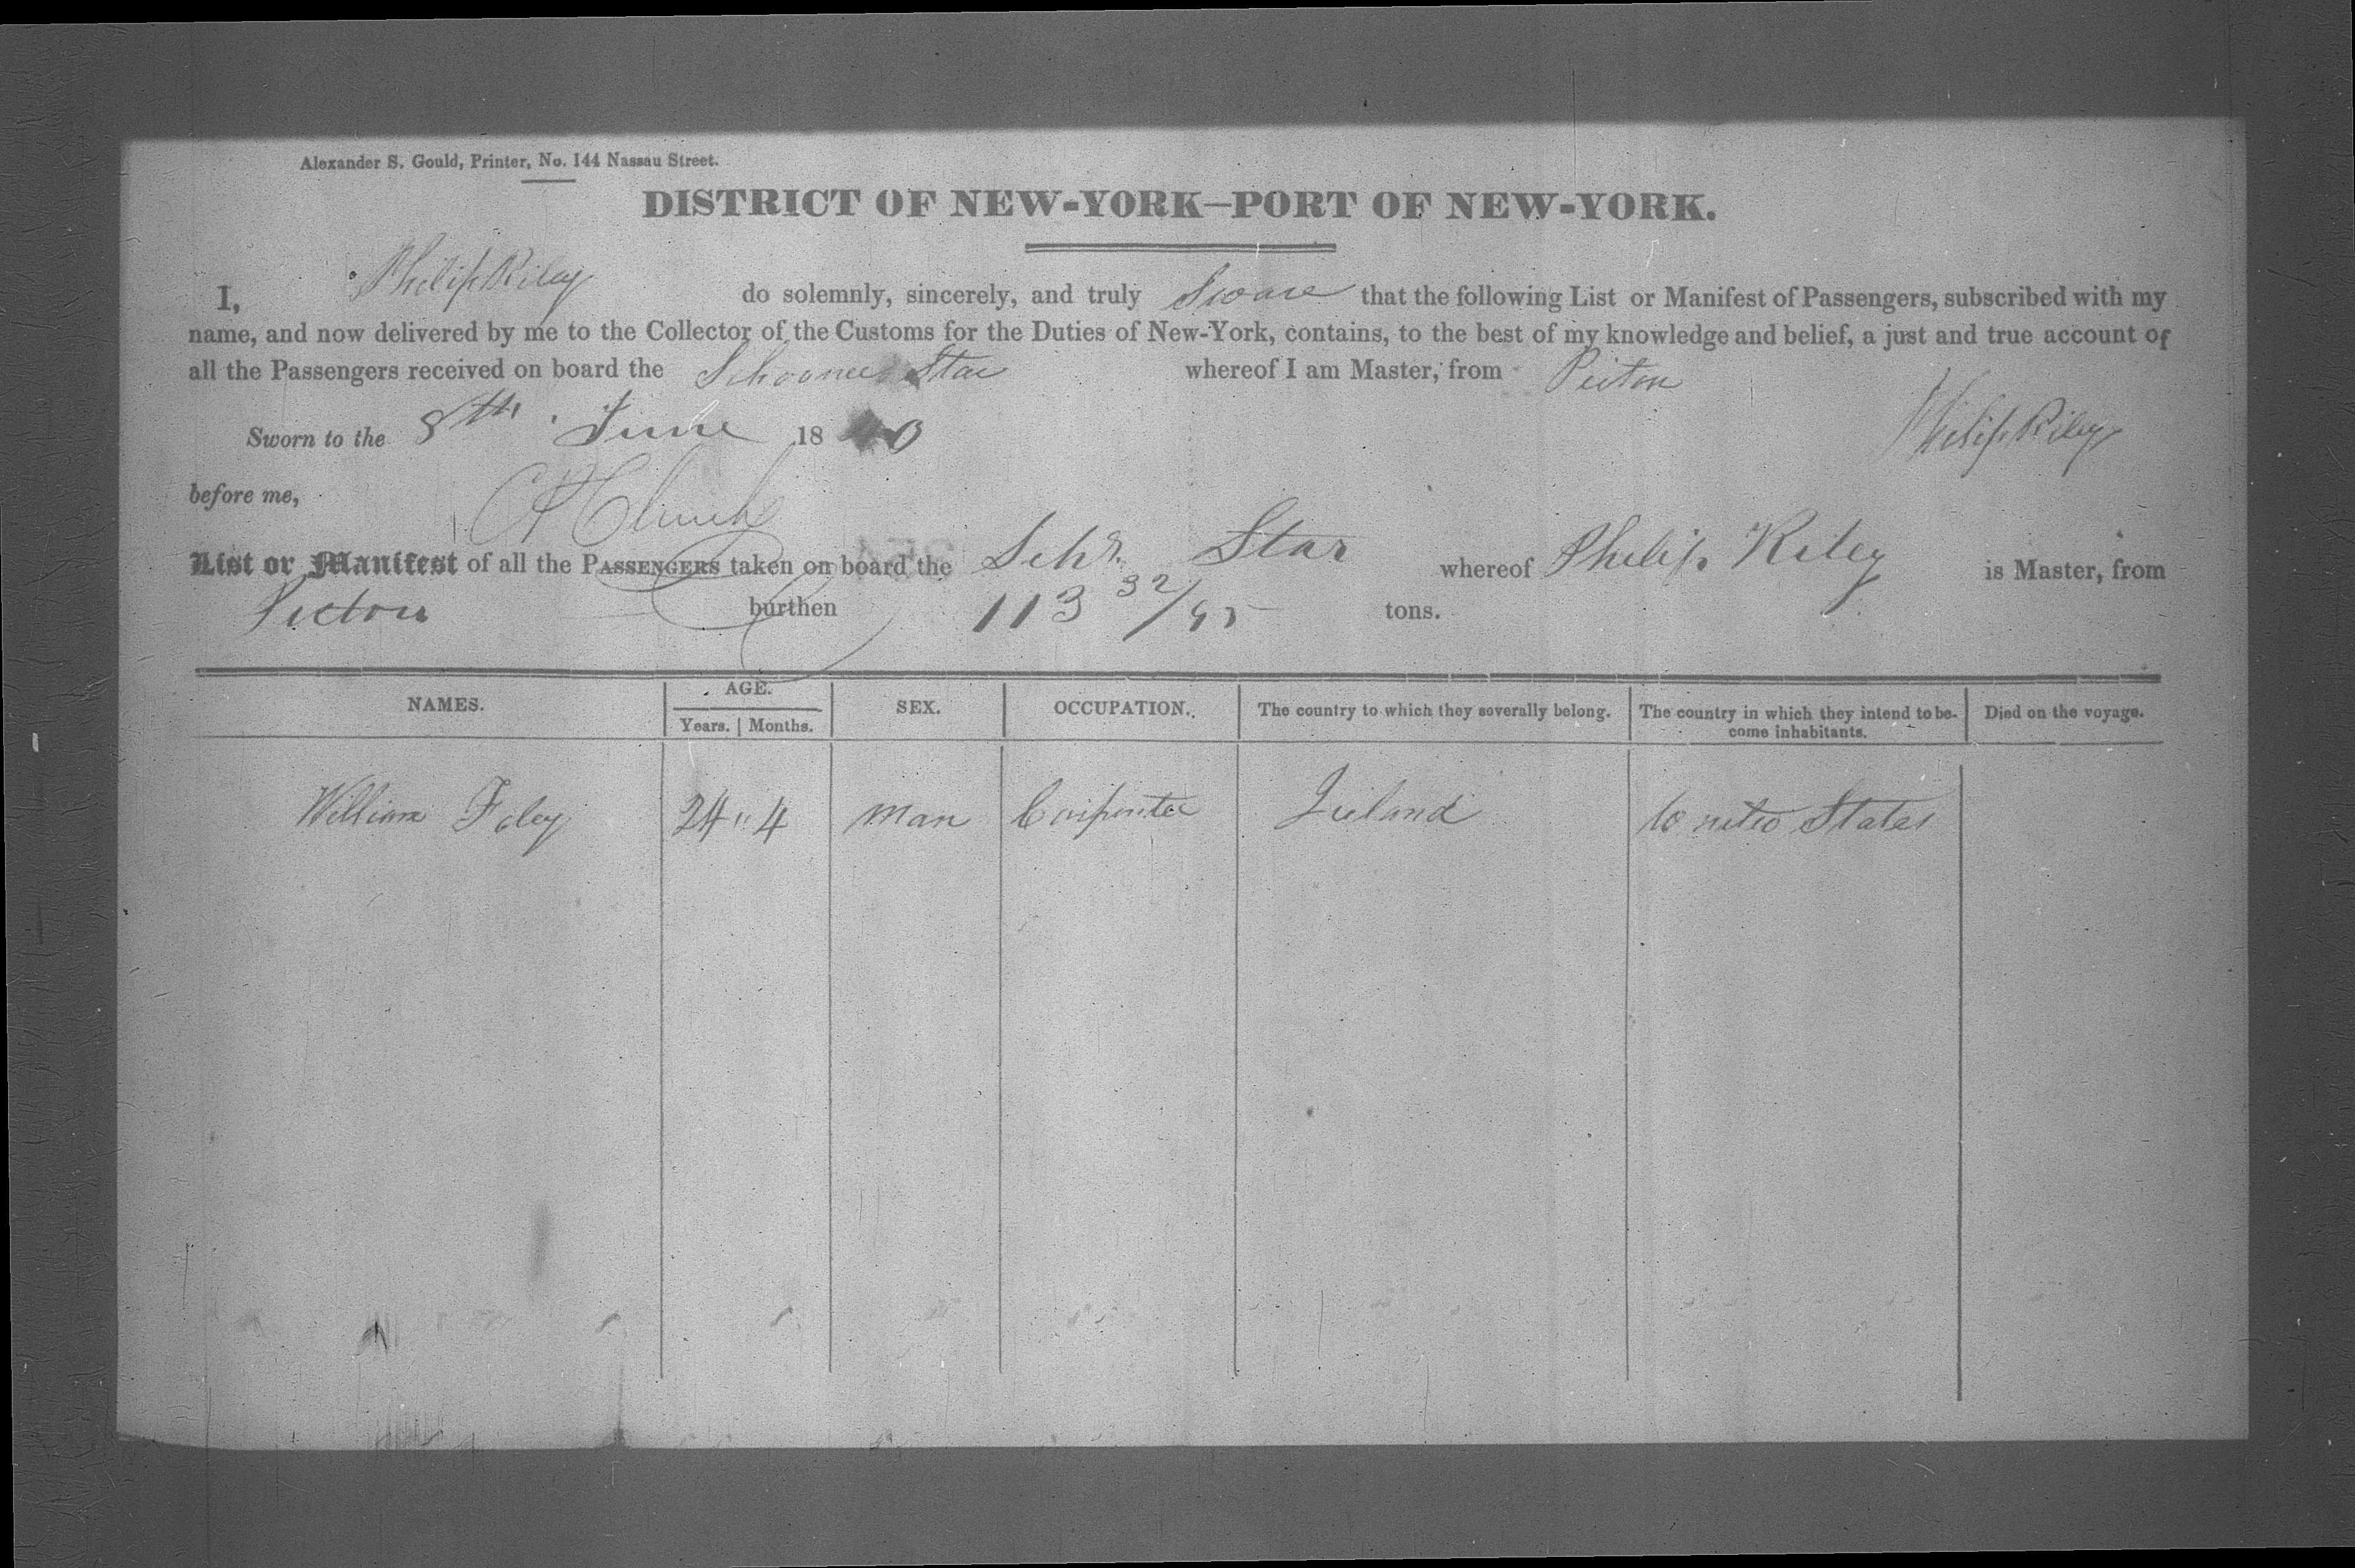 Alexander S. Gould, Printer, No. 144 Nassau Street.
DISTRICT OF NEW-YORK—PORT OF NEW-YORK.
I, Philip Riley do solemnly, sincerely, and truly Sware that the following List or Manifest of Passengers, subscribed with my
name, and now delivered by me to the Collector of the Customs for the Duties of New-York, contains, to the best of my knowledge and belief, a just and true account of
all the Passengers received on board the Schooner Star whereof I am Master, from Picton
Sworn to the 8th June 1840 Philip Riley
before me,
List or Manifest of all the PASSENGERS taken on board the Schr. Star whereof Philip Riley is Master, from
Picton burthen 113 32/95 tons.
NAMES. AGE. SEX. OCCUPATION. The country to which they severally belong. The country in which they intend to be- Died on the voyage.
Years. Months. come inhabitants.
William Foley 24 " 4 Man Carpenter Ireland United States